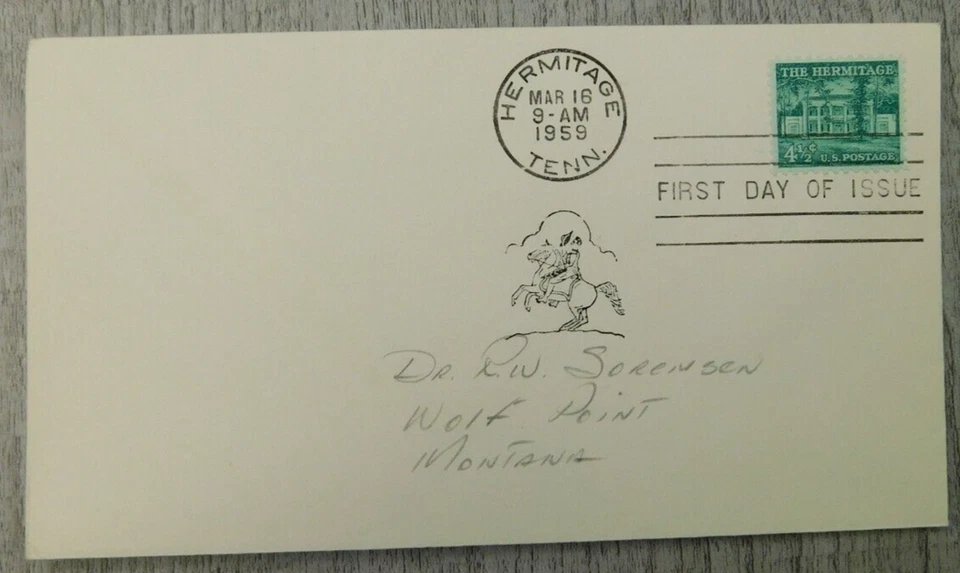 HERMITAGE
MAR 16
9-AM
1959
TENN.
THE HERMITAGE
4½¢ U.S. POSTAGE
FIRST DAY OF ISSUE
DR. R.W. SORENSEN
WOLF POINT
MONTANA